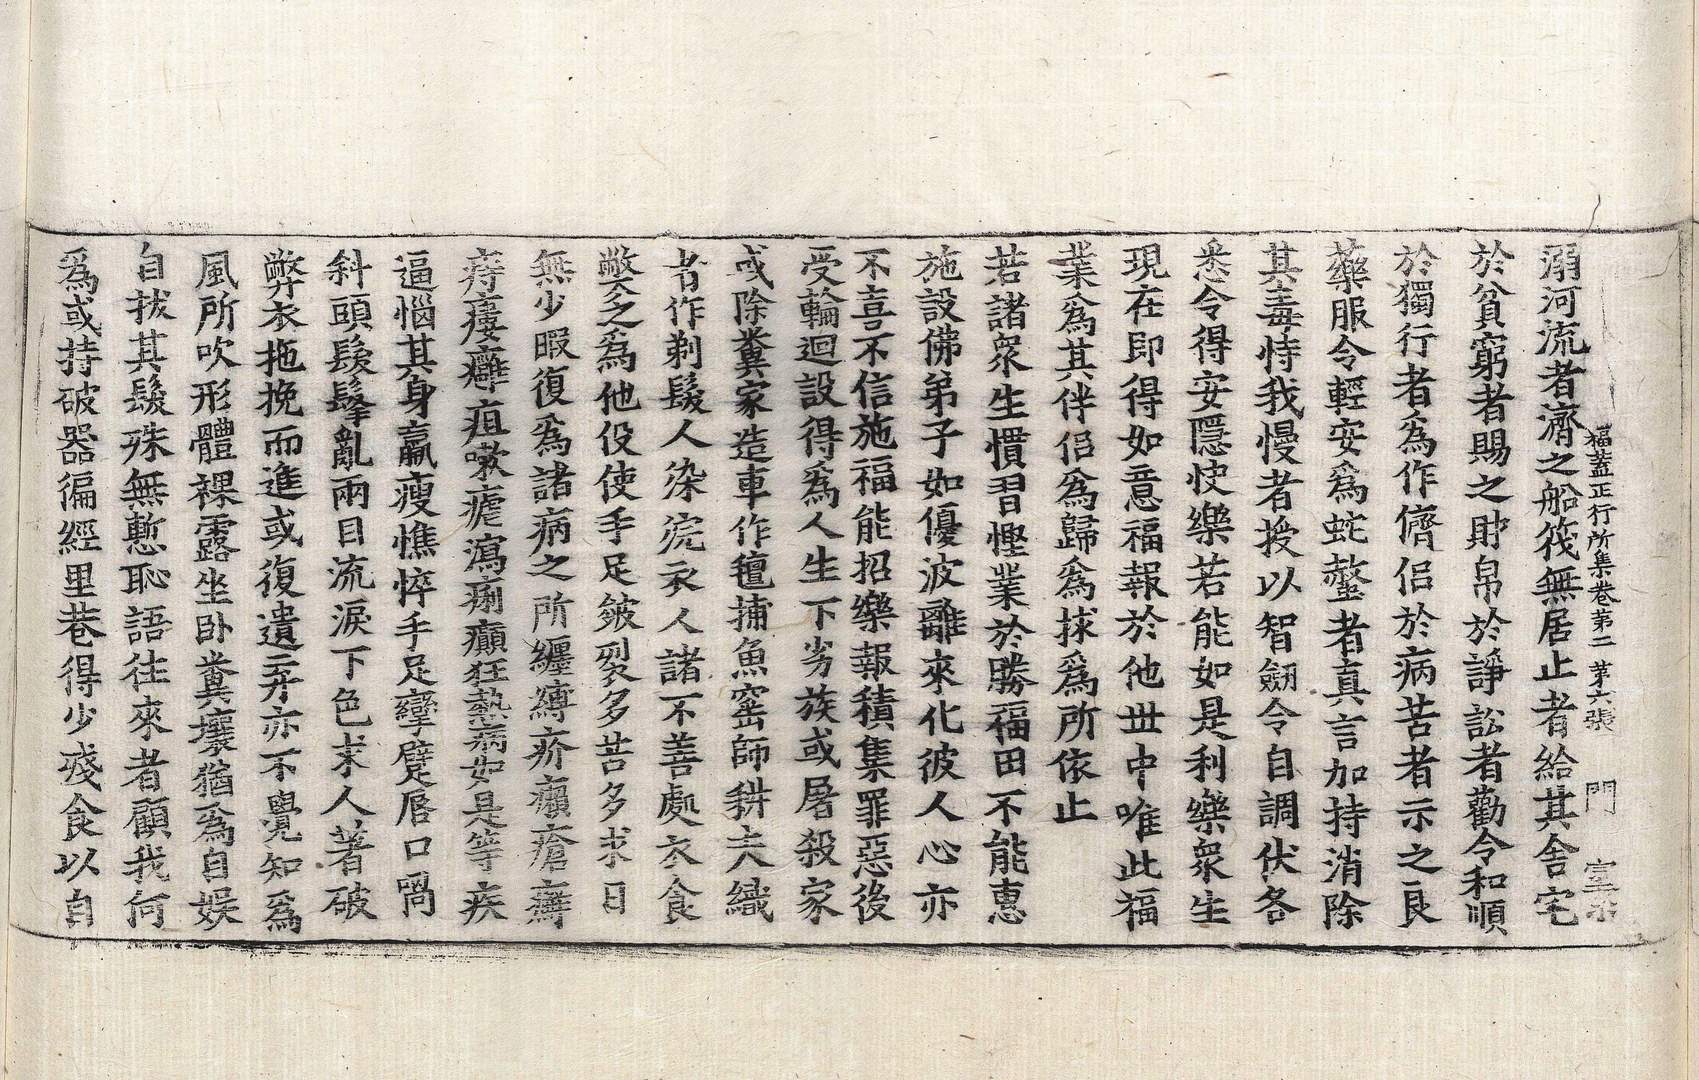 福蓋正行所集卷第二 第六張 門
溺河流者濟之船筏無居止者給其舍宅
於貧窮者賜之財帛於諍訟者勸令和順
於獨行者爲作儕侣於病苦者示之良
藥服令輕安爲蛇螫者真言加持消除
其毒恃我慢者授以智劒令自調伏各
悉令得安隱快樂若能如是利樂衆生
現在即得如意福報於他世中唯此福
業爲其伴侣爲歸爲救爲所依止
若諸衆生慣習慳業於勝福田不能惠
施設佛弟子如優波離來化彼人心亦
不喜不信施福能招樂報積集罪惡後
受輪迴設得爲人生下劣族或屠殺家
或除糞家造車作氊捕魚窰師耕夫織
者作剃髮人染浣衣人諸不善處衣食
弊乏爲他役使手足皴裂多苦多求日
無少暇復爲諸病之所纏縛疥癩瘡癬
痔瘻癰疽嗽瘧瀉痢癲狂熱病如是等疾
逼惱其身羸瘦憔悴手足攣躄唇口喎
斜頭髮髼亂兩目流淚下色求人著破
弊衣拖挽而進或復遺 亦不覺知爲
風所吹形體裸露坐卧糞壤猶爲自娱
自拔其髮殊無慙恥語往來者顧我何
爲或持破器徧經里巷得少殘食以自